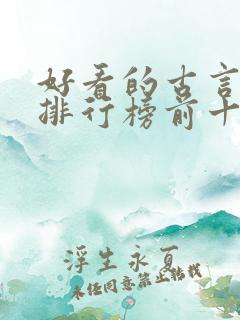 好看的古言
排行榜前十
浮生永夏
未经同意禁止转载